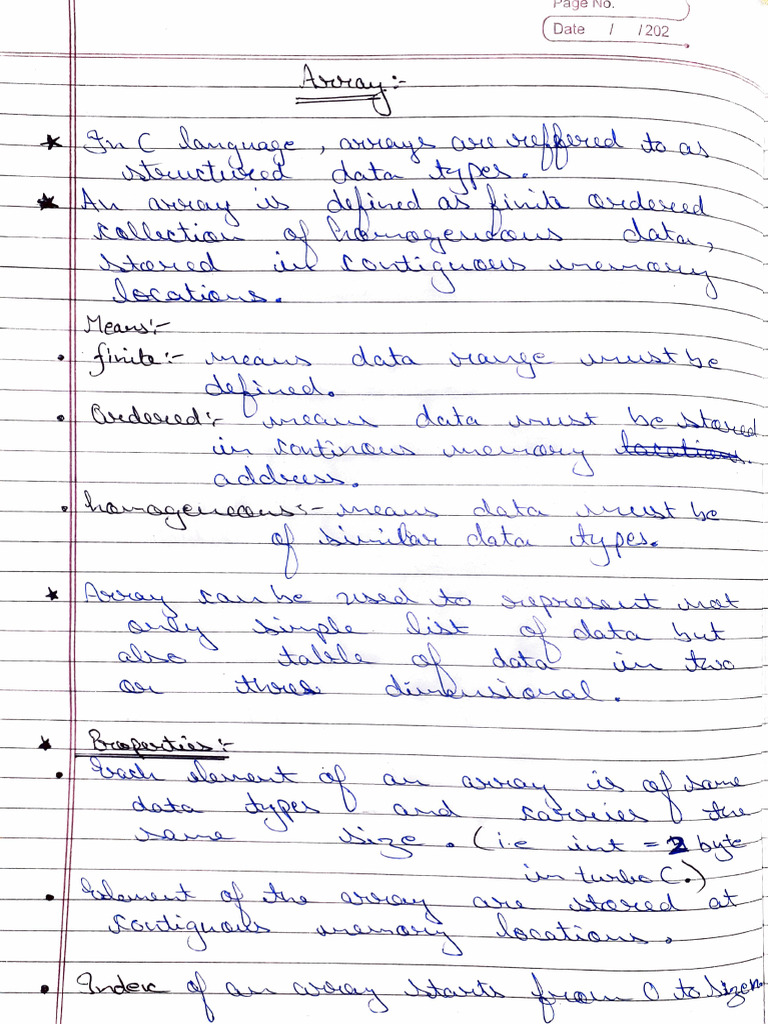 Page No.
Date / /202
Array:-
★ In C language, arrays are reffered to as
structured data types.
★ An array is defined as finite ordered
collection of homogenous data,
stored in contiguous memory
locations.
Means:-
• finite:- means data range must be
defined.
• Ordered:- means data must be stored
in continous memory locations.
address.
• homogeneous:- means data must be
of similar data types.
★ Array can be used to represent not
only simple list of data but
also table of data in two
or three dimensional.
★ Properties:-
• Each element of an array is of same
data types and carries the
same size. (i.e int = 2 byte
in turbo C.)
• Element of the array are stored at
contiguous memory locations.
• Index of an array starts from 0 to size